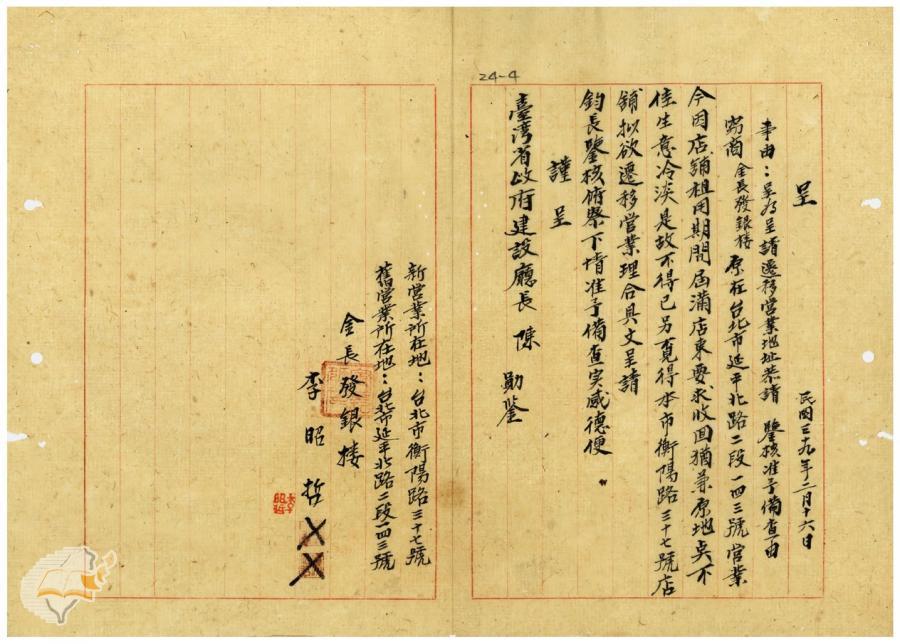 24-4
呈
民國三十九年二月十六日
事由：呈為呈請遷移營業地址恭請 鑒核准予備查由
竊商金長發銀樓原在台北市延平北路二段一四三號營業
今因店舖租用期間屆滿店東要求收回猶兼原地點不
佳生意冷淡是故不得已另覓得本市衡陽路三十七號店
舖拟欲遷移營業理合具文呈請
鈞長鑒核俯察下情准予備查实感德便
謹呈
臺灣省政府建設廳長 陳 勛鑒
新營業所在地：台北市衡陽路三十七號
舊營業所在地：台北市延平北路二段一四三號
金長發銀樓
李昭哲